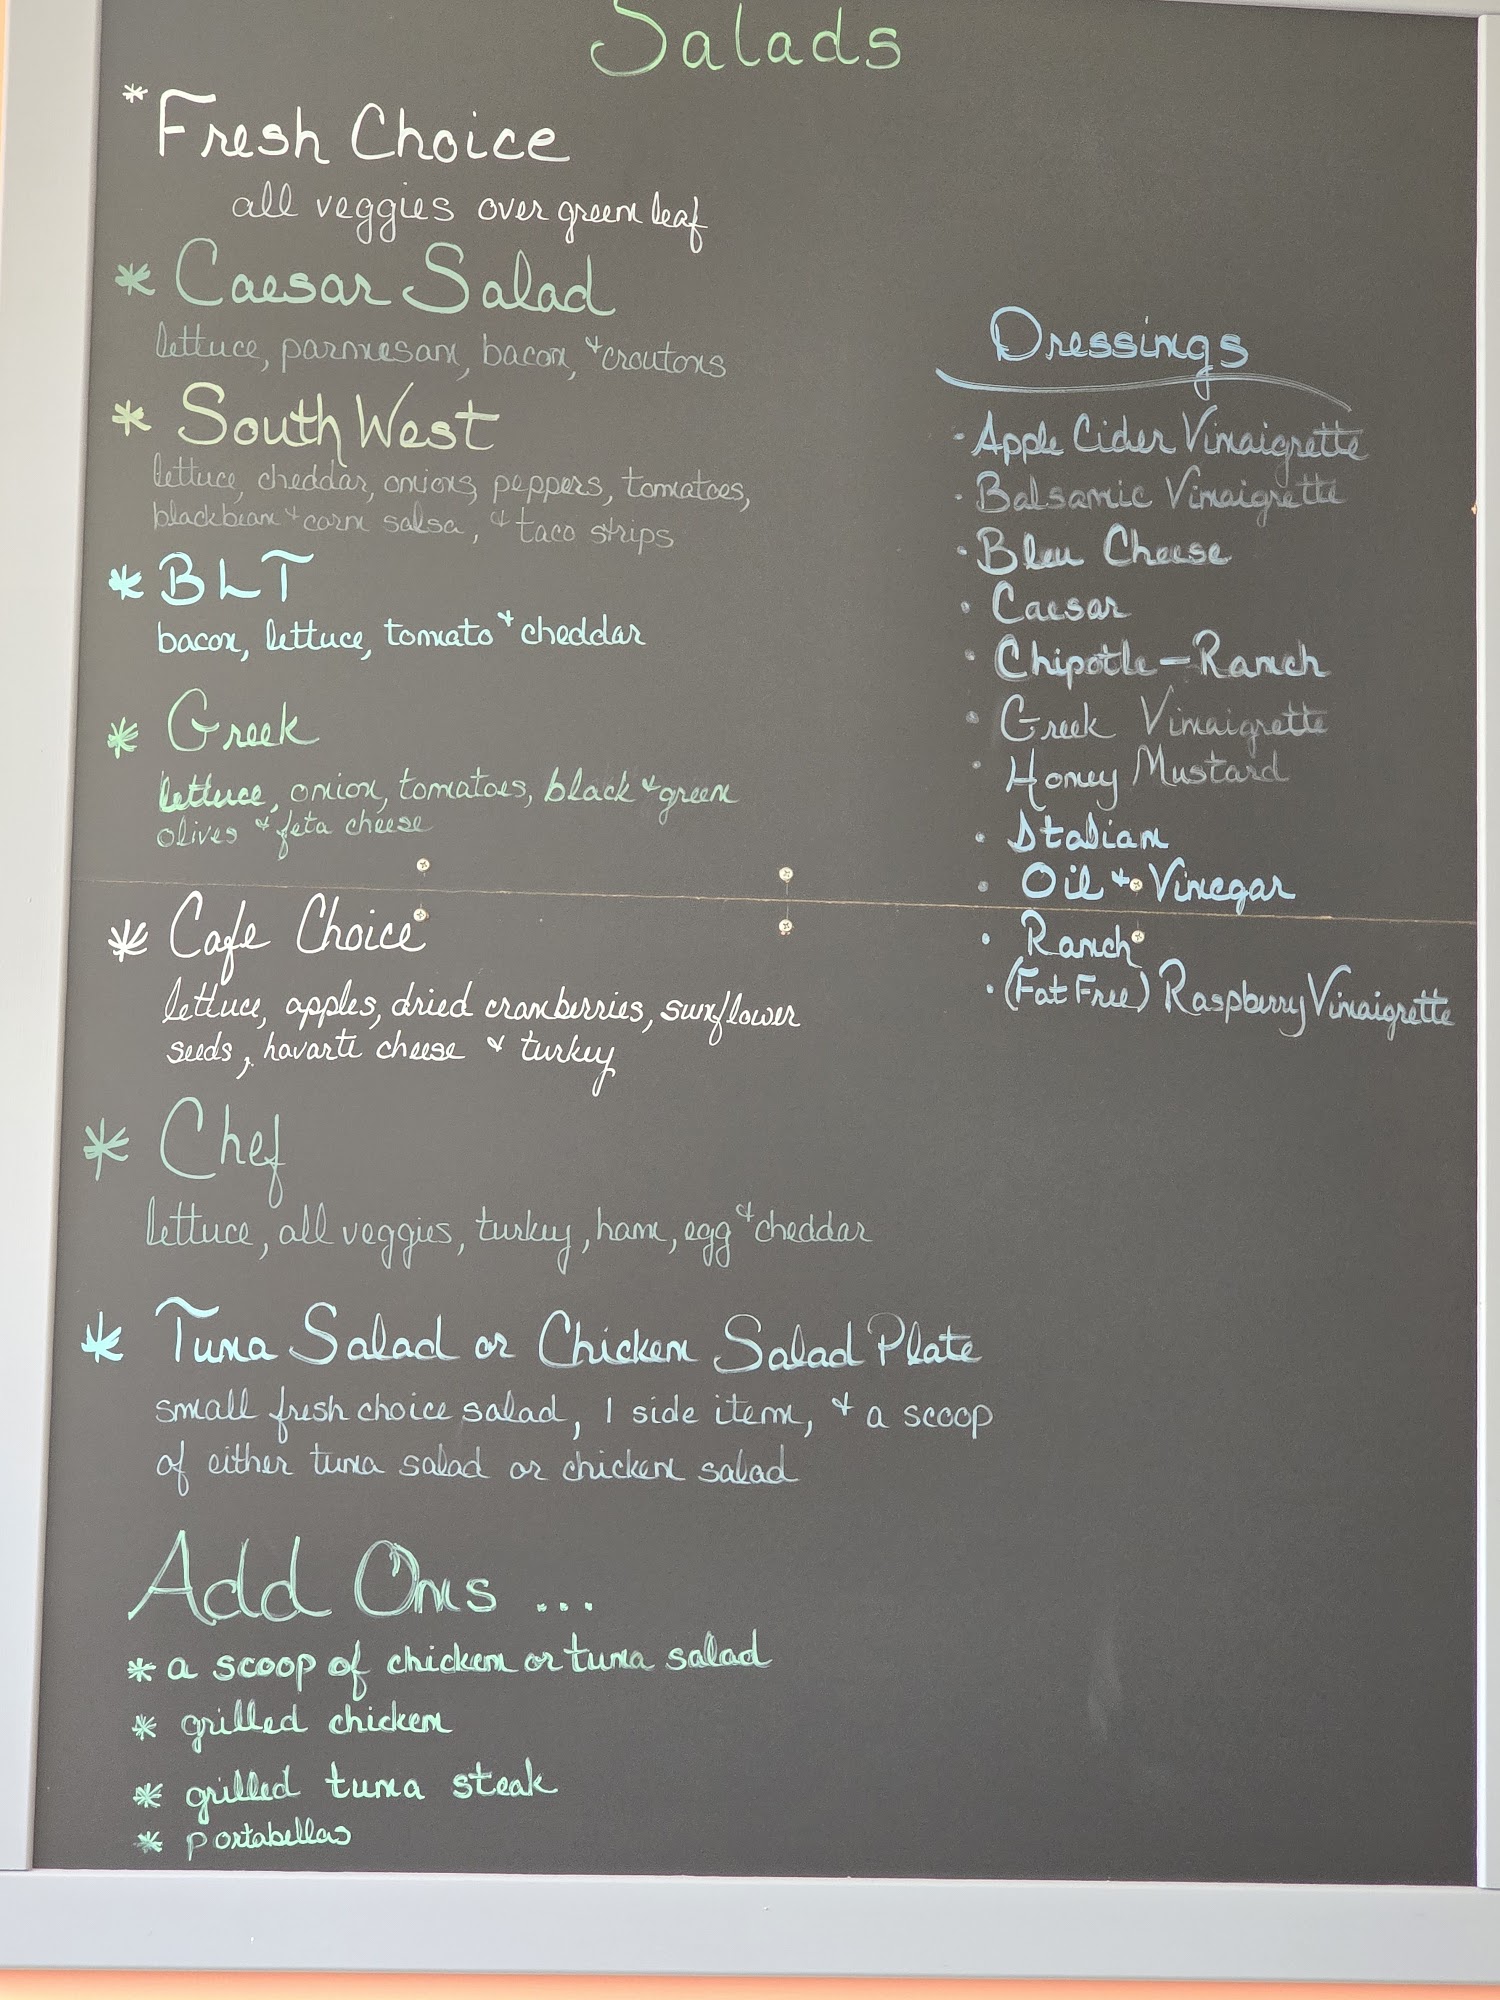 Salads
* Fresh Choice
all veggies over green leaf
* Caesar Salad
lettuce, parmesan, bacon, & croutons
* South West
lettuce, cheddar, onions, peppers, tomatoes,
blackbean & corn salsa, & taco strips
* BLT
bacon, lettuce, tomato & cheddar
* Greek
lettuce, onion, tomatoes, black & green
olives & feta cheese
* Cafe Choice
lettuce, apples, dried cranberries, sunflower
seeds, havarti cheese & turkey
* Chef
lettuce, all veggies, turkey, ham, egg & cheddar
* Tuna Salad or Chicken Salad Plate
small fresh choice salad, 1 side item, & a scoop
of either tuna salad or chicken salad
Add Ons ...
* a scoop of chicken or tuna salad
* grilled chicken
* grilled tuna steak
* portabellas
Dressings
· Apple Cider Vinaigrette
· Balsamic Vinaigrette
· Bleu Cheese
· Caesar
· Chipotle-Ranch
· Greek Vinaigrette
· Honey Mustard
· Italian
· Oil & Vinegar
· Ranch
· (Fat Free) Raspberry Vinaigrette